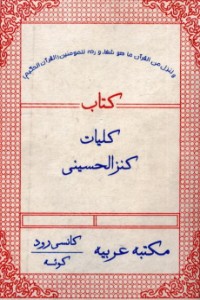 وننزل من القرآن ما هو شفاء ورحمة للمؤمنين (القرآن الحکیم)
کتاب
کلیات
کنزالحسینی
مکتبه عربیه
کانسی روڈ
کوئٹہ